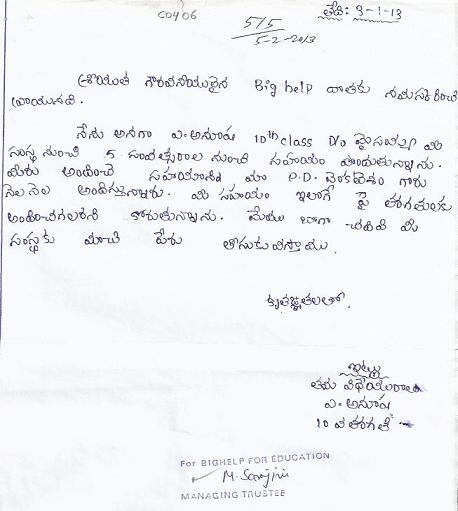 C0406
515
5-2-2013
తేది: 3-1-13
శ్రీయుత గౌరవనీయులైన Big help దాతకు నమస్కరించి
వ్రాయునది.
నేను అనగా ఎ. అనూష 10th class D/o మైసయ్య మీ
సంస్థ నుంచి 5 సంవత్సరాల నుంచి సహాయం పొందుతున్నాను.
మీరు అందించే సహాయాన్ని మా P.D. వెంకటేశం గారు
నెల నెల అందిస్తున్నారు. మీ సహాయం ఇలాగే పై తరగతులకు
అందించగలరని కోరుతున్నాను. మేము బాగా చదివి మీ
సంస్థకు మంచి పేరు తీసుకువస్తాము.
కృతజ్ఞతలతో,
ఇట్లు
తమ విధేయురాలు
ఎ. అనూష
10 వ తరగతి
For BIGHELP FOR EDUCATION
M. Sarojini
MANAGING TRUSTEE